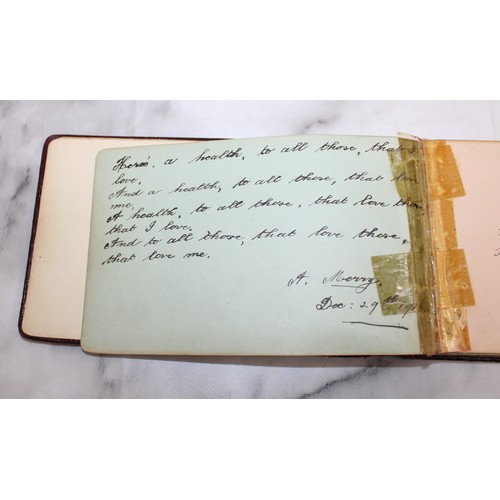 Here's, a health, to all those, that I
love,
And a health, to all those, that love
me.
A health, to all those, that love those,
that I love.
And to all those, that love those,
that love me.
A. Merry.
Dec: 29th